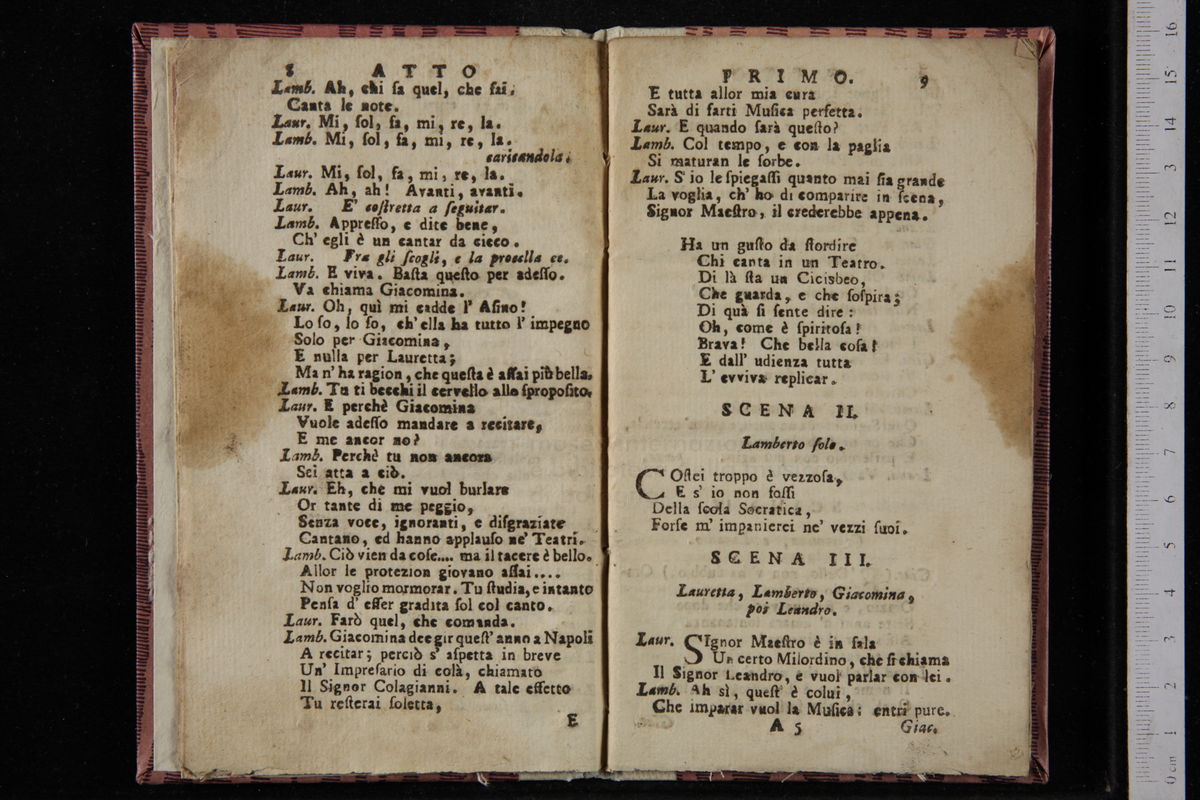 8 ATTO
Lamb. Ah, chi ſa quel, che fai.
Canta le note.
Laur. Mi, ſol, fa, mi, re, la.
Lamb. Mi, ſol, fa, mi, re, la.
caricandola.
Laur. Mi, ſol, fa, mi, re, la.
Lamb. Ah, ah! Avanti, avanti.
Laur. E' coſtretta a ſeguitar.
Lamb. Appreſſo, e dite bene,
Ch' egli è un cantar da cieco.
Laur. Fra gli ſcogli, e la procella ec.
Lamb. E viva. Baſta queſto per adeſſo.
Va chiama Giacomina.
Laur. Oh, quì mi cadde l' Aſino!
Lo ſo, lo ſo, ch' ella ha tutto l' impegno
Solo per Giacomina,
E nulla per Lauretta;
Ma n' ha ragion, che queſta è aſſai più bella.
Lamb. Tu ti becchi il cervello allo ſpropoſito.
Laur. E perchè Giacomina
Vuole adeſſo mandare a recitare,
E me ancor no?
Lamb. Perchè tu non ancora
Sei atta a ciò.
Laur. Eh, che mi vuol burlare
Or tante di me peggio,
Senza voce, ignoranti, e diſgraziate
Cantano, ed hanno applauſo ne' Teatri.
Lamb. Ciò vien da coſe.... ma il tacere è bello.
Allor le protezion giovano aſſai....
Non voglio mormorar. Tu ſtudia, e intanto
Penſa d' eſſer gradita ſol col canto.
Laur. Farò quel, che comanda.
Lamb. Giacomina dee gir queſt' anno a Napoli
A recitar; perciò s' aſpetta in breve
Un' Impreſario di colà, chiamato
Il Signor Colagianni. A tale effetto
Tu reſterai ſoletta,
E
PRIMO. 9
E tutta allor mia cura
Sarà di farti Muſica perfetta.
Laur. E quando ſarà queſto?
Lamb. Col tempo, e con la paglia
Si maturan le ſorbe.
Laur. S' io le ſpiegaſſi quanto mai ſia grande
La voglia, ch' ho di comparire in ſcena,
Signor Maeſtro, il crederebbe appena.
Ha un guſto da ſtordire
Chi canta in un Teatro.
Di là ſta un Cicisbeo,
Che guarda, e che ſoſpira;
Di quà ſi ſente dire:
Oh, come è ſpiritoſa!
Brava! Che bella coſa!
E dall' udienza tutta
L' evviva replicar.
SCENA II.
Lamberto ſolo.
COſtei troppo è vezzoſa,
E s' io non foſſi
Della ſcola Socratica,
Forſe m' impanierei ne' vezzi ſuoi.
SCENA III.
Lauretta, Lamberto, Giacomina,
poi Leandro.
Laur. SIgnor Maeſtro è in ſala
Un certo Milordino, che ſi chiama
Il Signor Leandro, e vuol parlar con lei.
Lamb. Ah sì, queſt' è colui,
Che imparar vuol la Muſica: entri pure.
A 5 Giac.
0 cm 1 2 3 4 5 6 7 8 9 10 11 12 3 14 15 16